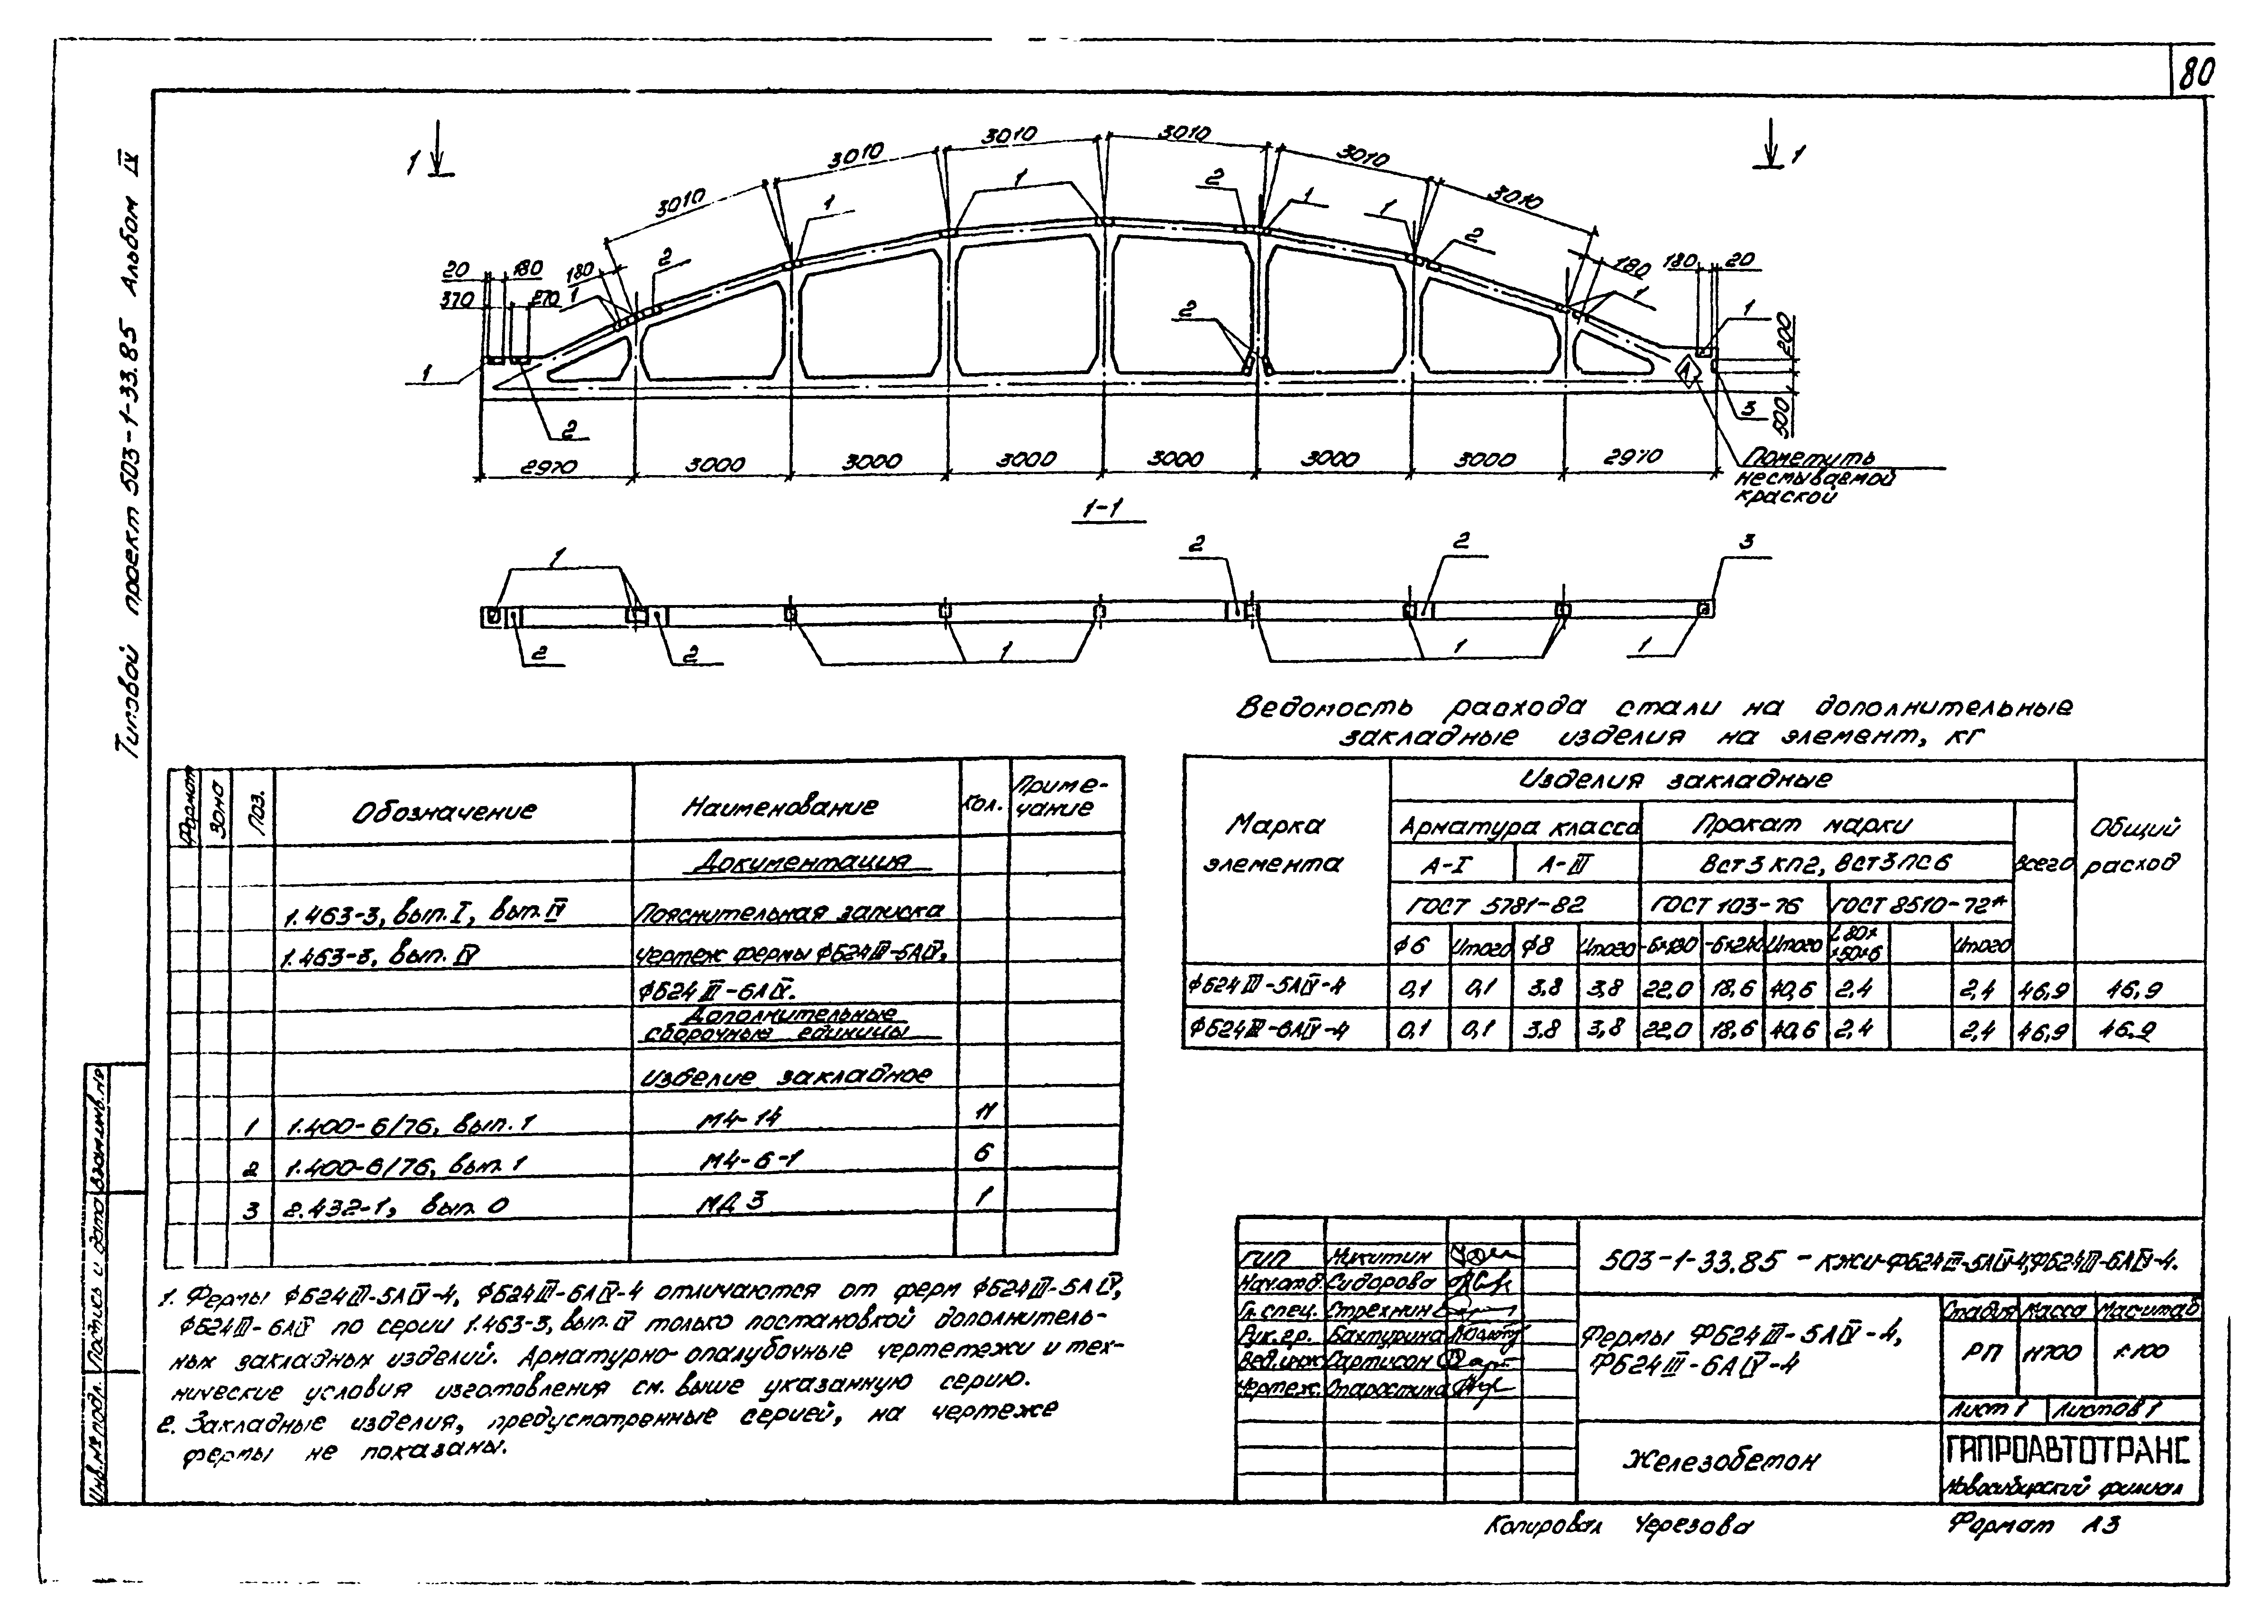 80
Типовой проект 503-1-33.85 Альбом IV
1
1
3010
3010
3010
3010
3010
3010
1
1
2
1
1
2
2
20
180
180
370
270
1
180
180
20
1
1
200
500
2
1
2
3
2970
3000
3000
3000
3000
3000
3000
2970
Пометить
несмываемой
краской
1-1
1
2
2
3
2
2
1
1
1
Ведомость расхода стали на дополнительные
закладные изделия на элемент, кг
Марка элемента
Изделия закладные
Общий расход
Арматура класса
Прокат марки
Всего
А-I
А-III
Вст3кп2, Вст3пс6
ГОСТ 5781-82
ГОСТ 103-76
ГОСТ 8510-72*
ф6 Итого ф8 Итого -6х180 Итого Итого
ФБ24III-5АIV-4 0,1 0,1 3,8 3,8 22,0 18,6 40,6 2,4 2,4 46,9 46,9
ФБ24III-6АIV-4 0,1 0,1 3,8 3,8 22,0 18,6 40,6 2,4 2,4 46,9 46,9
Формат Зона Поз. Обозначение Наименование Кол. Примечание
Документация
1.463-3, вып. I, вып. IV Пояснительная записка
1.463-3, вып. IV Чертеж фермы ФБ24III-5АIV,
ФБ24III-6АIV.
Дополнительные
сборочные единицы
Изделие закладное
1 1.400-6/76, вып. 1 М4-14 11
2 1.400-6/76, вып. 1 М4-6-1 6
3 2.432-1, вып. 0 МД 3 1
1. Фермы ФБ24III-5АIV-4, ФБ24III-6АIV-4 отличаются от ферм ФБ24III-5АIV,
ФБ24III-6АIV по серии 1.463-3, вып. IV только постановкой дополнитель-
ных закладных изделий. Арматурно-опалубочные чертетежи и тех-
нические условия изготовления см. выше указанную серию.
2. Закладные изделия, предусмотренные серией, на чертеже
фермы не показаны.
Инв.№ подл. Подпись и дата Взам.инв.№
ГИП Никитин
Нач.отд. Сидорова
Гл. спец. Стрехнин
Рук.гр. Бахтурина
Вед.инж. Сартисон
Чертеж. Старостина
503-1-33.85 - КЖИ-ФБ24III-5АIV-4,ФБ24III-6АIV-4.
Фермы ФБ24III-5АIV-4,
ФБ24III-6АIV-4
Стадия Масса Масштаб
РП 11700 1:100
Лист 1 Листов 1
Железобетон
ГИПРОАВТОТРАНС
Новосибирский филиал
Копировал Черезова
Формат А3